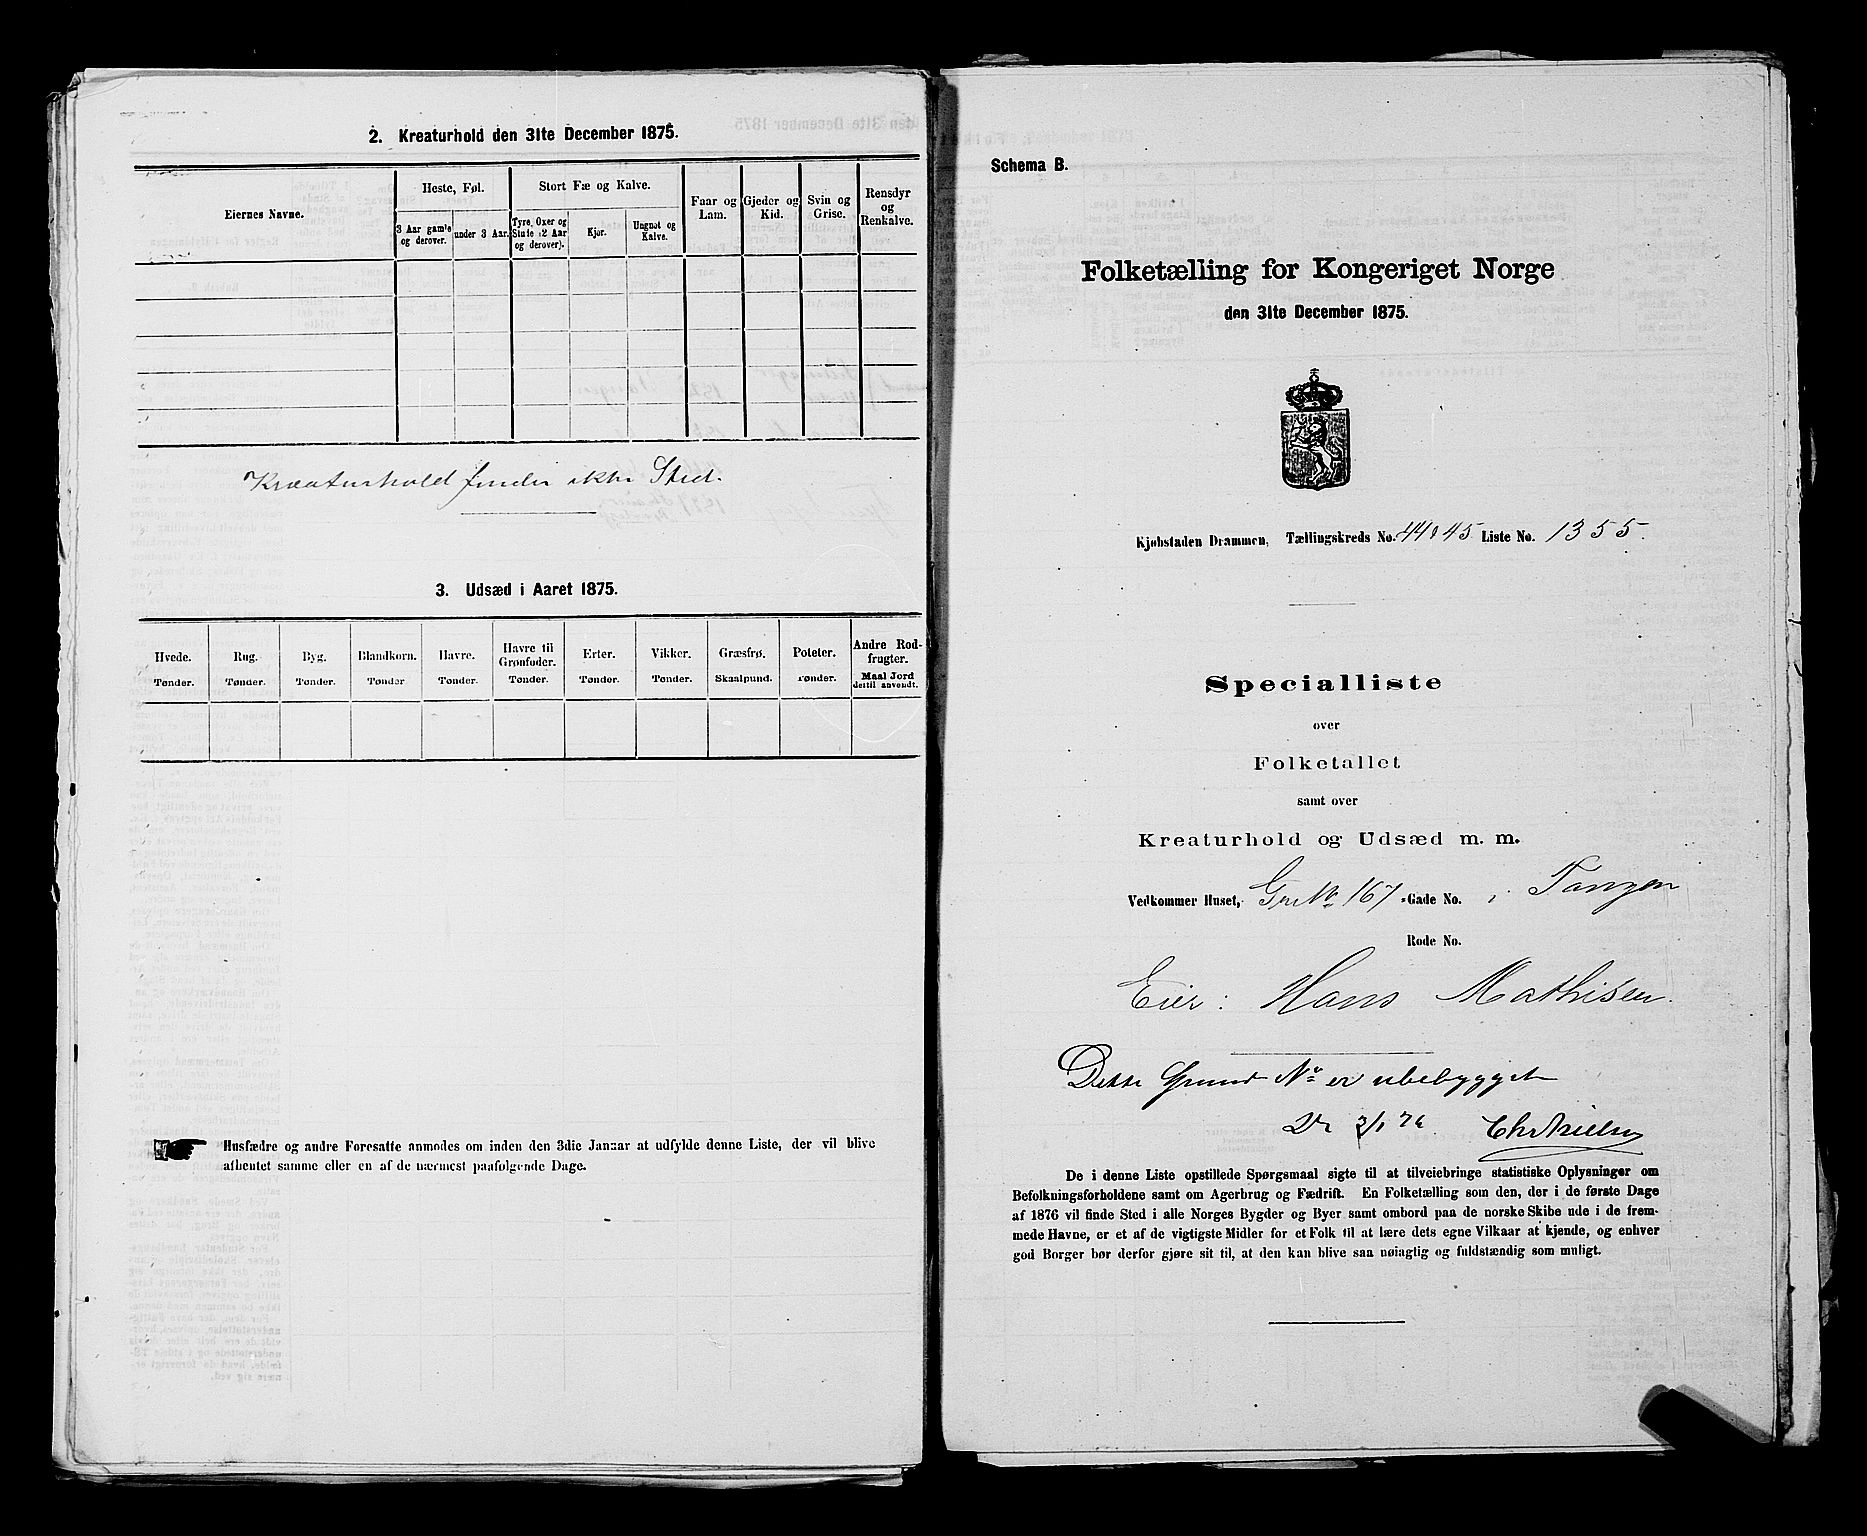 2. Kreaturhold den 31te December 1875.
Eiernes Navne.
Heste, Føl.
Stort Fæ og Kalve.
Faar og Lam.
Gjeder og Kid.
Svin og Grise.
Rensdyr og Renkalve.
3 Aar gamle og derover.
under 3 Aar.
Tyre, Oxer og Stude (2 Aar og derover).
Kjør.
Ungnøt og Kalve.
Kreaturhold finder ikke Sted.
3. Udsæd i Aaret 1875.
Hvede. Tønder.
Rug. Tønder.
Byg. Tønder.
Blandkorn. Tønder
Havre. Tønder.
Havre til Grønfoder. Tønder.
Erter. Tønder.
Vikker. Tønder.
Græsfrø. Skaalpund.
Poteter. Tønder.
Andre Rodfrugter. Maal Jord dertil anvendt.
Husfædre og andre Foresatte anmodes om inden den 3die Januar at udfylde denne Liste, der vil blive
afhentet samme eller en af de nærmest paafølgende Dage.
Schema B.
Folketælling for Kongeriget Norge
den 31te December 1875.
Kjøbstaden Drammen, Tællingskreds No. 44&45 Liste No. 1355.
Specialliste
over
Folketallet
samt over
Kreaturhold og Udsæd m. m.
Vedkommer Huset, Gr No 167 Gade No. i Tangen
Rode No.
Eier: Hans Mathisen.
Dette Grund No er ubebygget
3/1 76 Chr Nielsen
De i denne Liste opstillede Spørgsmaal sigte til at tilveiebringe statistiske Oplysninger om
Befolkningsforholdene samt om Agerbrug og Fædrift. En Folketælling som den, der i de første Dage
af 1876 vil finde Sted i alle Norges Bygder og Byer samt ombord paa de norske Skibe ude i de frem-
mede Havne, er et af de vigtigste Midler for et Folk til at lære dets egne Vilkaar at kjende, og enhver
god Borger bør derfor gjøre sit til, at den kan blive saa nøiagtig og fuldstændig som muligt.